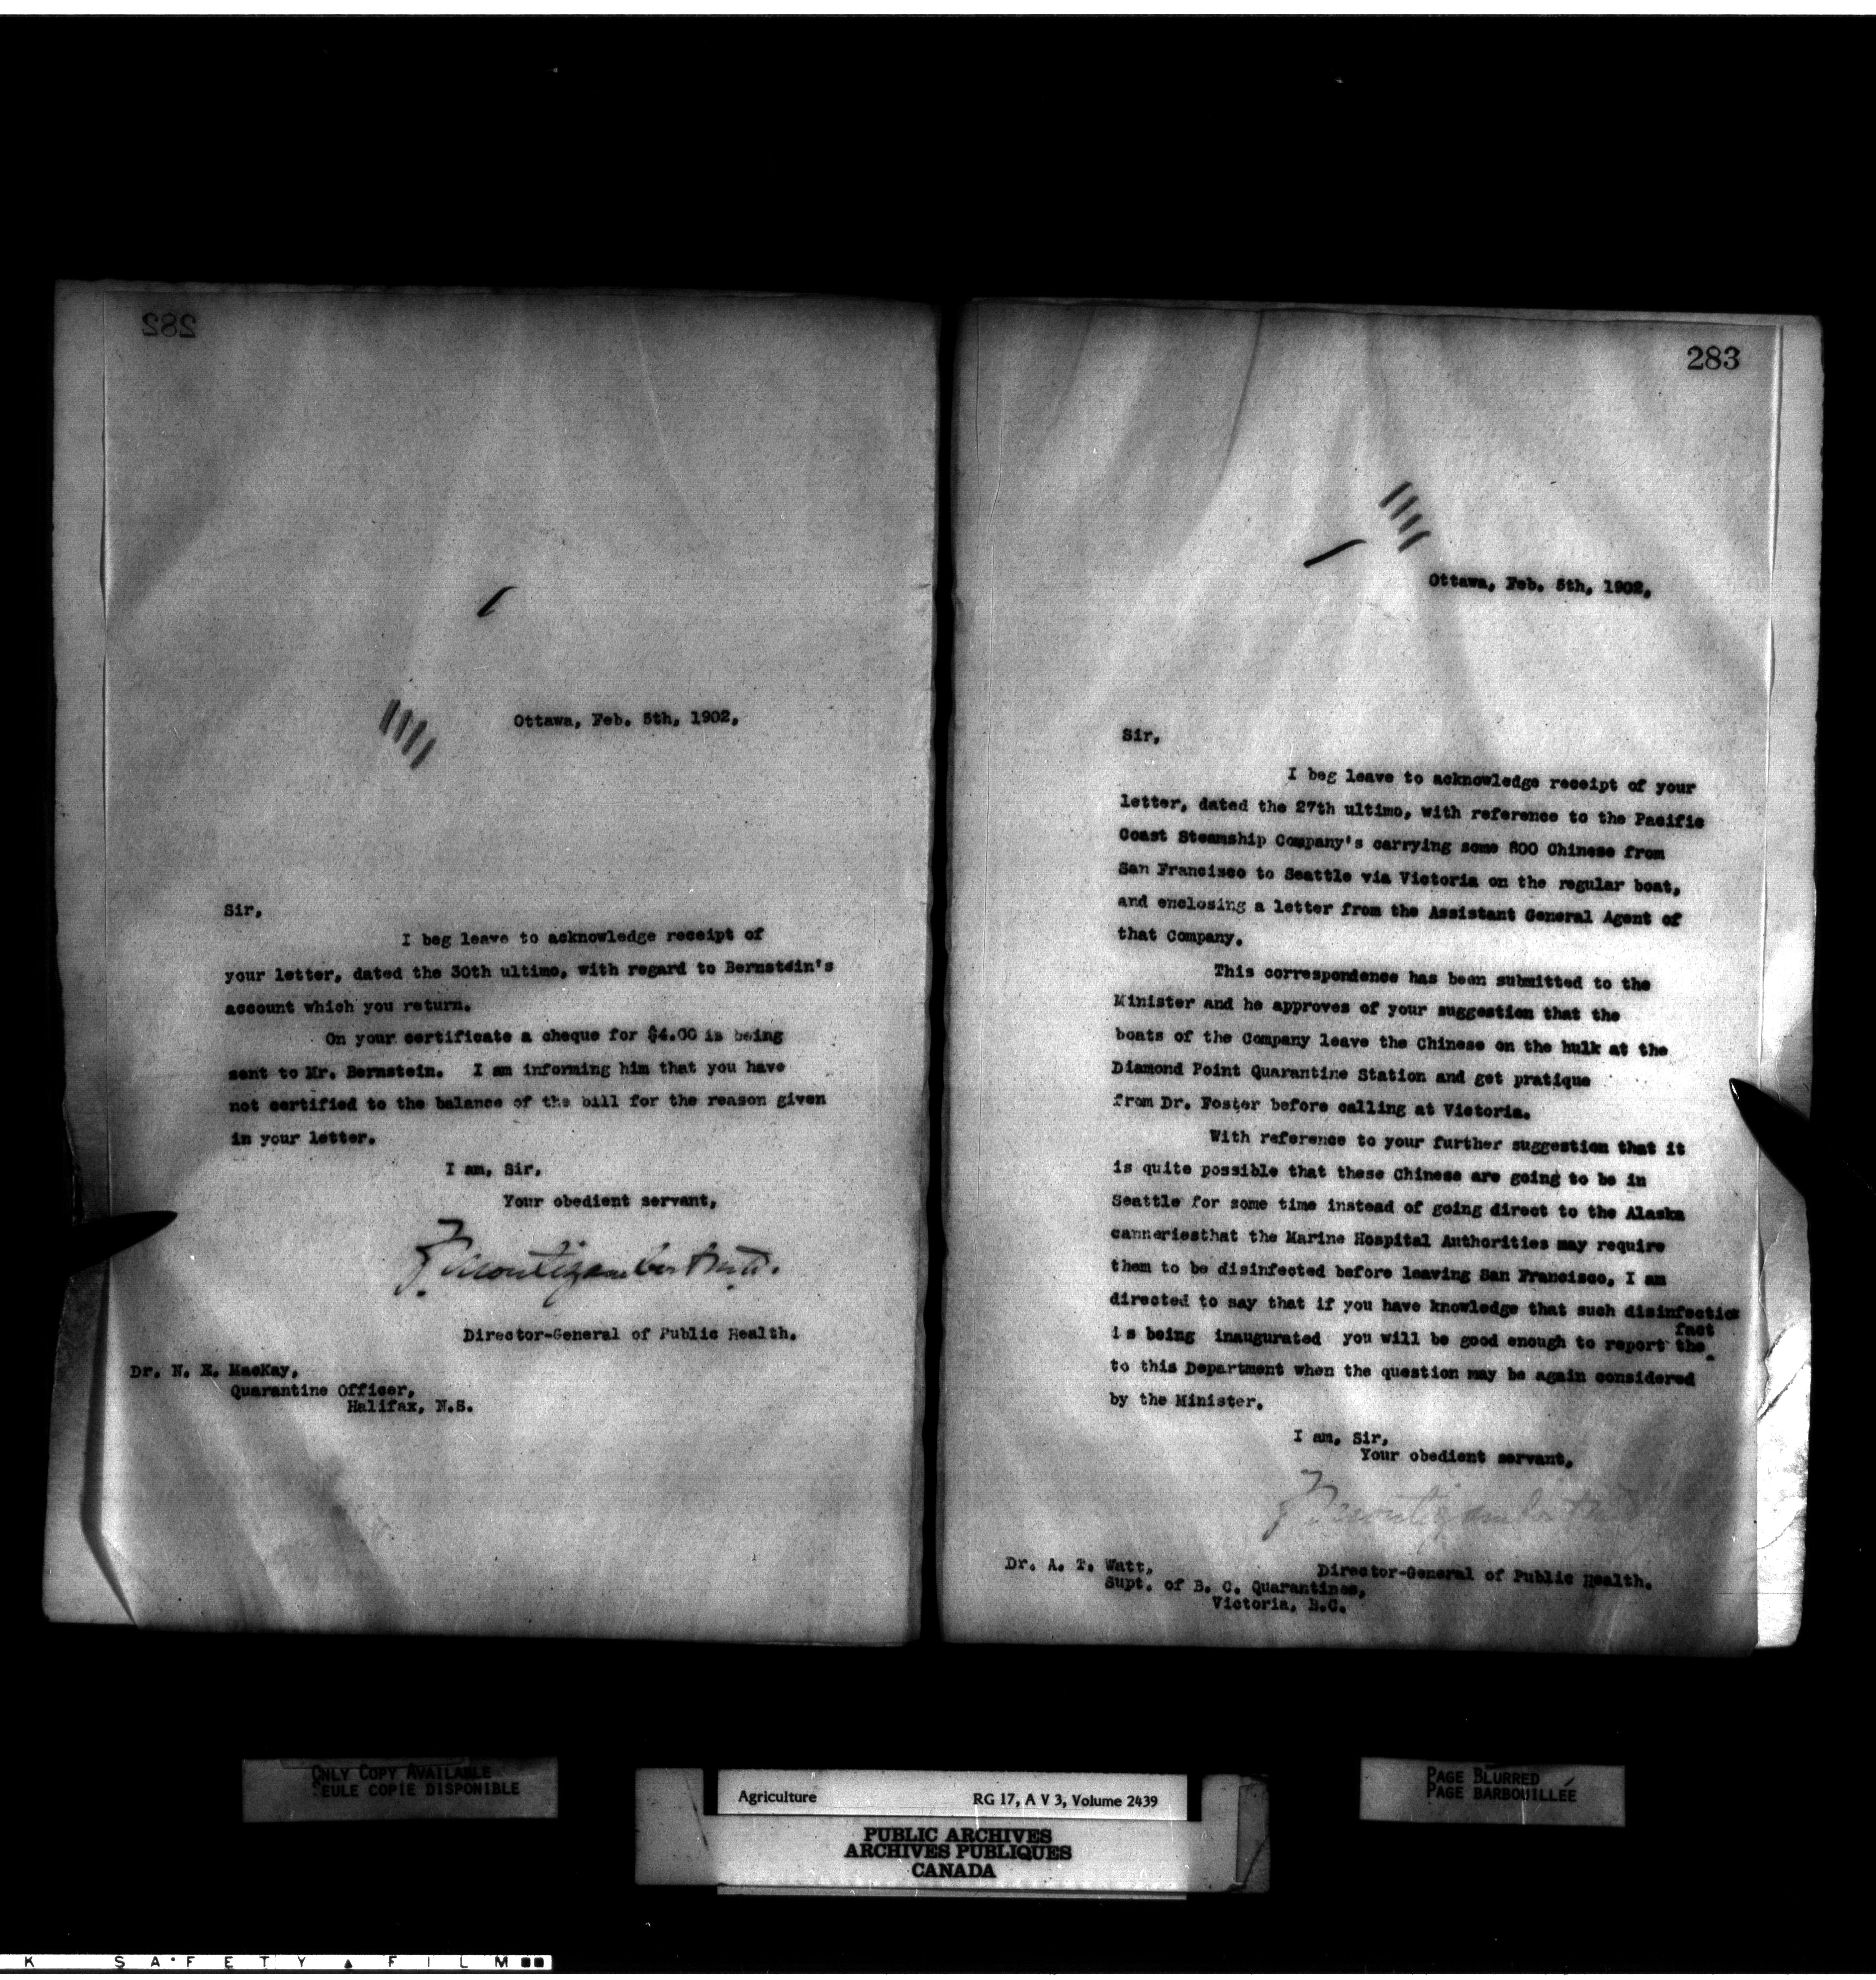 282
Ottawa, Feb. 5th, 1902,
Sir,
I beg leave to acknowledge receipt of
your letter, dated the 30th ultimo, with regard to Bernstein's
account which you return.
On your certificate a cheque for $4.00 is being
sent to Mr. Bernstein. I am informing him that you have
not certified to the balance of the bill for the reason given
in your letter.
I am, Sir,
Your obedient servant,
F. Montizambert
Director-General of Public Health.
Dr. N. E. MacKay,
Quarantine Officer,
Halifax, N.S.
283
Ottawa, Feb. 5th, 1902,
Sir,
I beg leave to acknowledge receipt of your
letter, dated the 27th ultimo, with reference to the Pacific
Coast Steamship Company's carrying some 800 Chinese from
San Francisco to Seattle via Victoria on the regular boat,
and enclosing a letter from the Assistant General Agent of
that Company.
This correspondence has been submitted to the
Minister and he approves of your suggestion that the
boats of the Company leave the Chinese on the hulk at the
Diamond Point Quarantine Station and get pratique
from Dr. Foster before calling at Victoria.
With reference to your further suggestion that it
is quite possible that these Chinese are going to be in
Seattle for some time instead of going direct to the Alaska
canneriesthat the Marine Hospital Authorities may require
them to be disinfected before leaving San Francisco, I am
directed to say that if you have knowledge that such disinfection
is being inaugurated you will be good enough to report the fact
to this Department when the question may be again considered
by the Minister.
I am, Sir,
Your obedient servant,
F. Montizambert
Director-General of Public Health.
Dr. A. T. Watt,
Supt. of B. C. Quarantines,
Victoria, B.C.
ONLY COPY AVAILABLE
SEULE COPIE DISPONIBLE
Agriculture RG 17, A V 3, Volume 2439
PUBLIC ARCHIVES
ARCHIVES PUBLIQUES
CANADA
PAGE BLURRED
PAGE BARBOUILLÉE
K SAFETY FILM